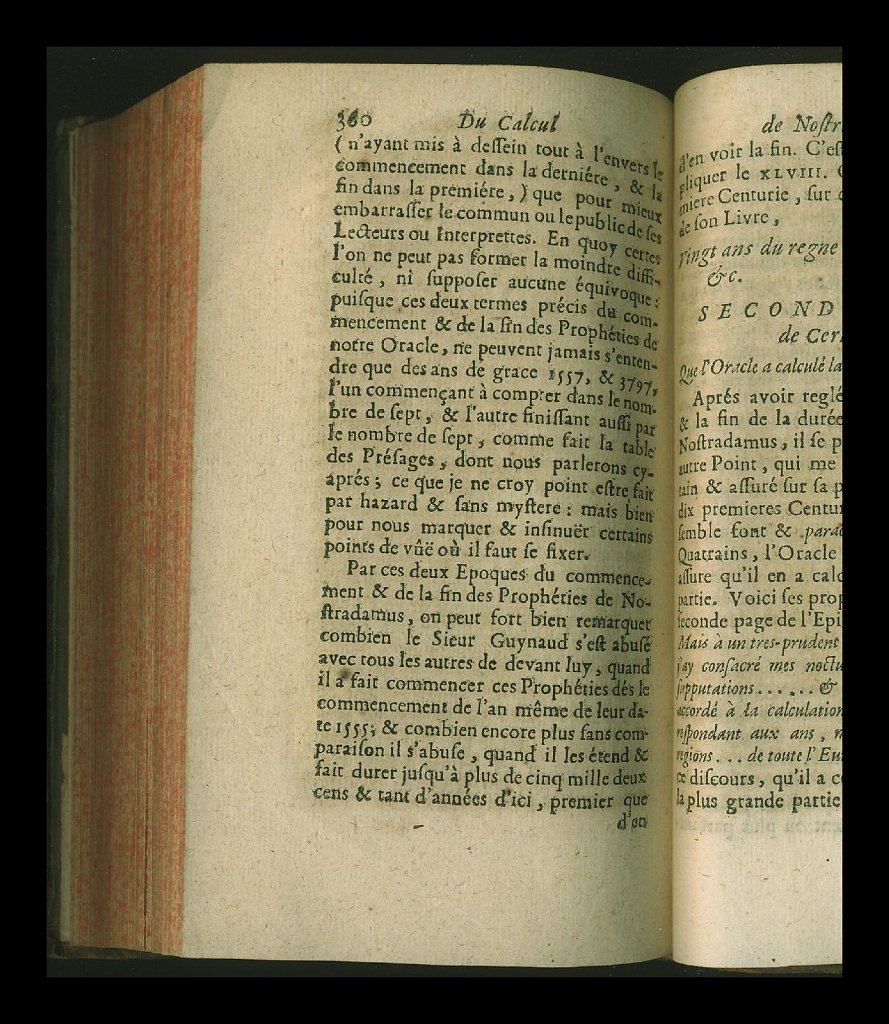 360 Du Calcul
( n'ayant mis à deſſein tout à l'envers le
commencement dans la derniére, & la
fin dans la premiére, ) que pour mieux
embarraſſer le commun ou le public de ſes
Lecteurs ou Interprettes. En quoy certes
l'on ne peut pas former la moindre diffi-
culté, ni ſuppoſer aucune équivoque :
puiſque ces deux termes précis du com-
mencement & de la fin des Prophéties de
notre Oracle, ne peuvent jamais s'enten-
dre que des ans de grace 1557, & 3797,
l'un commençant à compter dans le nom-
bre de ſept, & l'autre finiſſant auſſi par
le nombre de ſept, comme fait la table
des Préſages, dont nous parlerons cy-
aprés ; ce que je ne croy point eſtre fait
par hazard & ſans myſtere : mais bien
pour nous marquer & inſinuër certains
points de vûë où il faut ſe fixer.
Par ces deux Epoques du commence-
ment & de la fin des Prophéties de No-
ſtradamus, on peut fort bien remarquer
combien le Sieur Guynaud s'eſt abuſé
avec tous les autres de devant luy, quand
il a fait commencer ces Prophéties dés le
commencement de l'an même de leur da-
te 1555; & combien encore plus ſans com-
paraiſon il s'abuſe, quand il les étend &
fait durer juſqu'à plus de cinq mille deux
cens & tant d'années d'ici, premier que
d'en
de Noſtr
d'en voir la fin. C'eſ
pliquer le XLVIII.
miere Centurie, ſur
de ſon Livre,
Vingt ans du regne
&c.
SECOND
de Cer
Que l'Oracle a calculé la
Aprés avoir reglé
& la fin de la durée
Noſtradamus, il ſe p
autre Point, qui me
tain & aſſuré ſur ſa p
dix premieres Centu
ſemble font & para
Quatrains, l'Oracle
aſſure qu'il en a calc
partie. Voici ſes prop
ſeconde page de l'Epi
Mais à un tres-prudent
j'ay conſacré mes noctu
ſupputations . . . . . . &
accordé à la calculation
reſpondant aux ans,
regions . . . de toute l'Eu
ce diſcours, qu'il a c
la plus grande partie